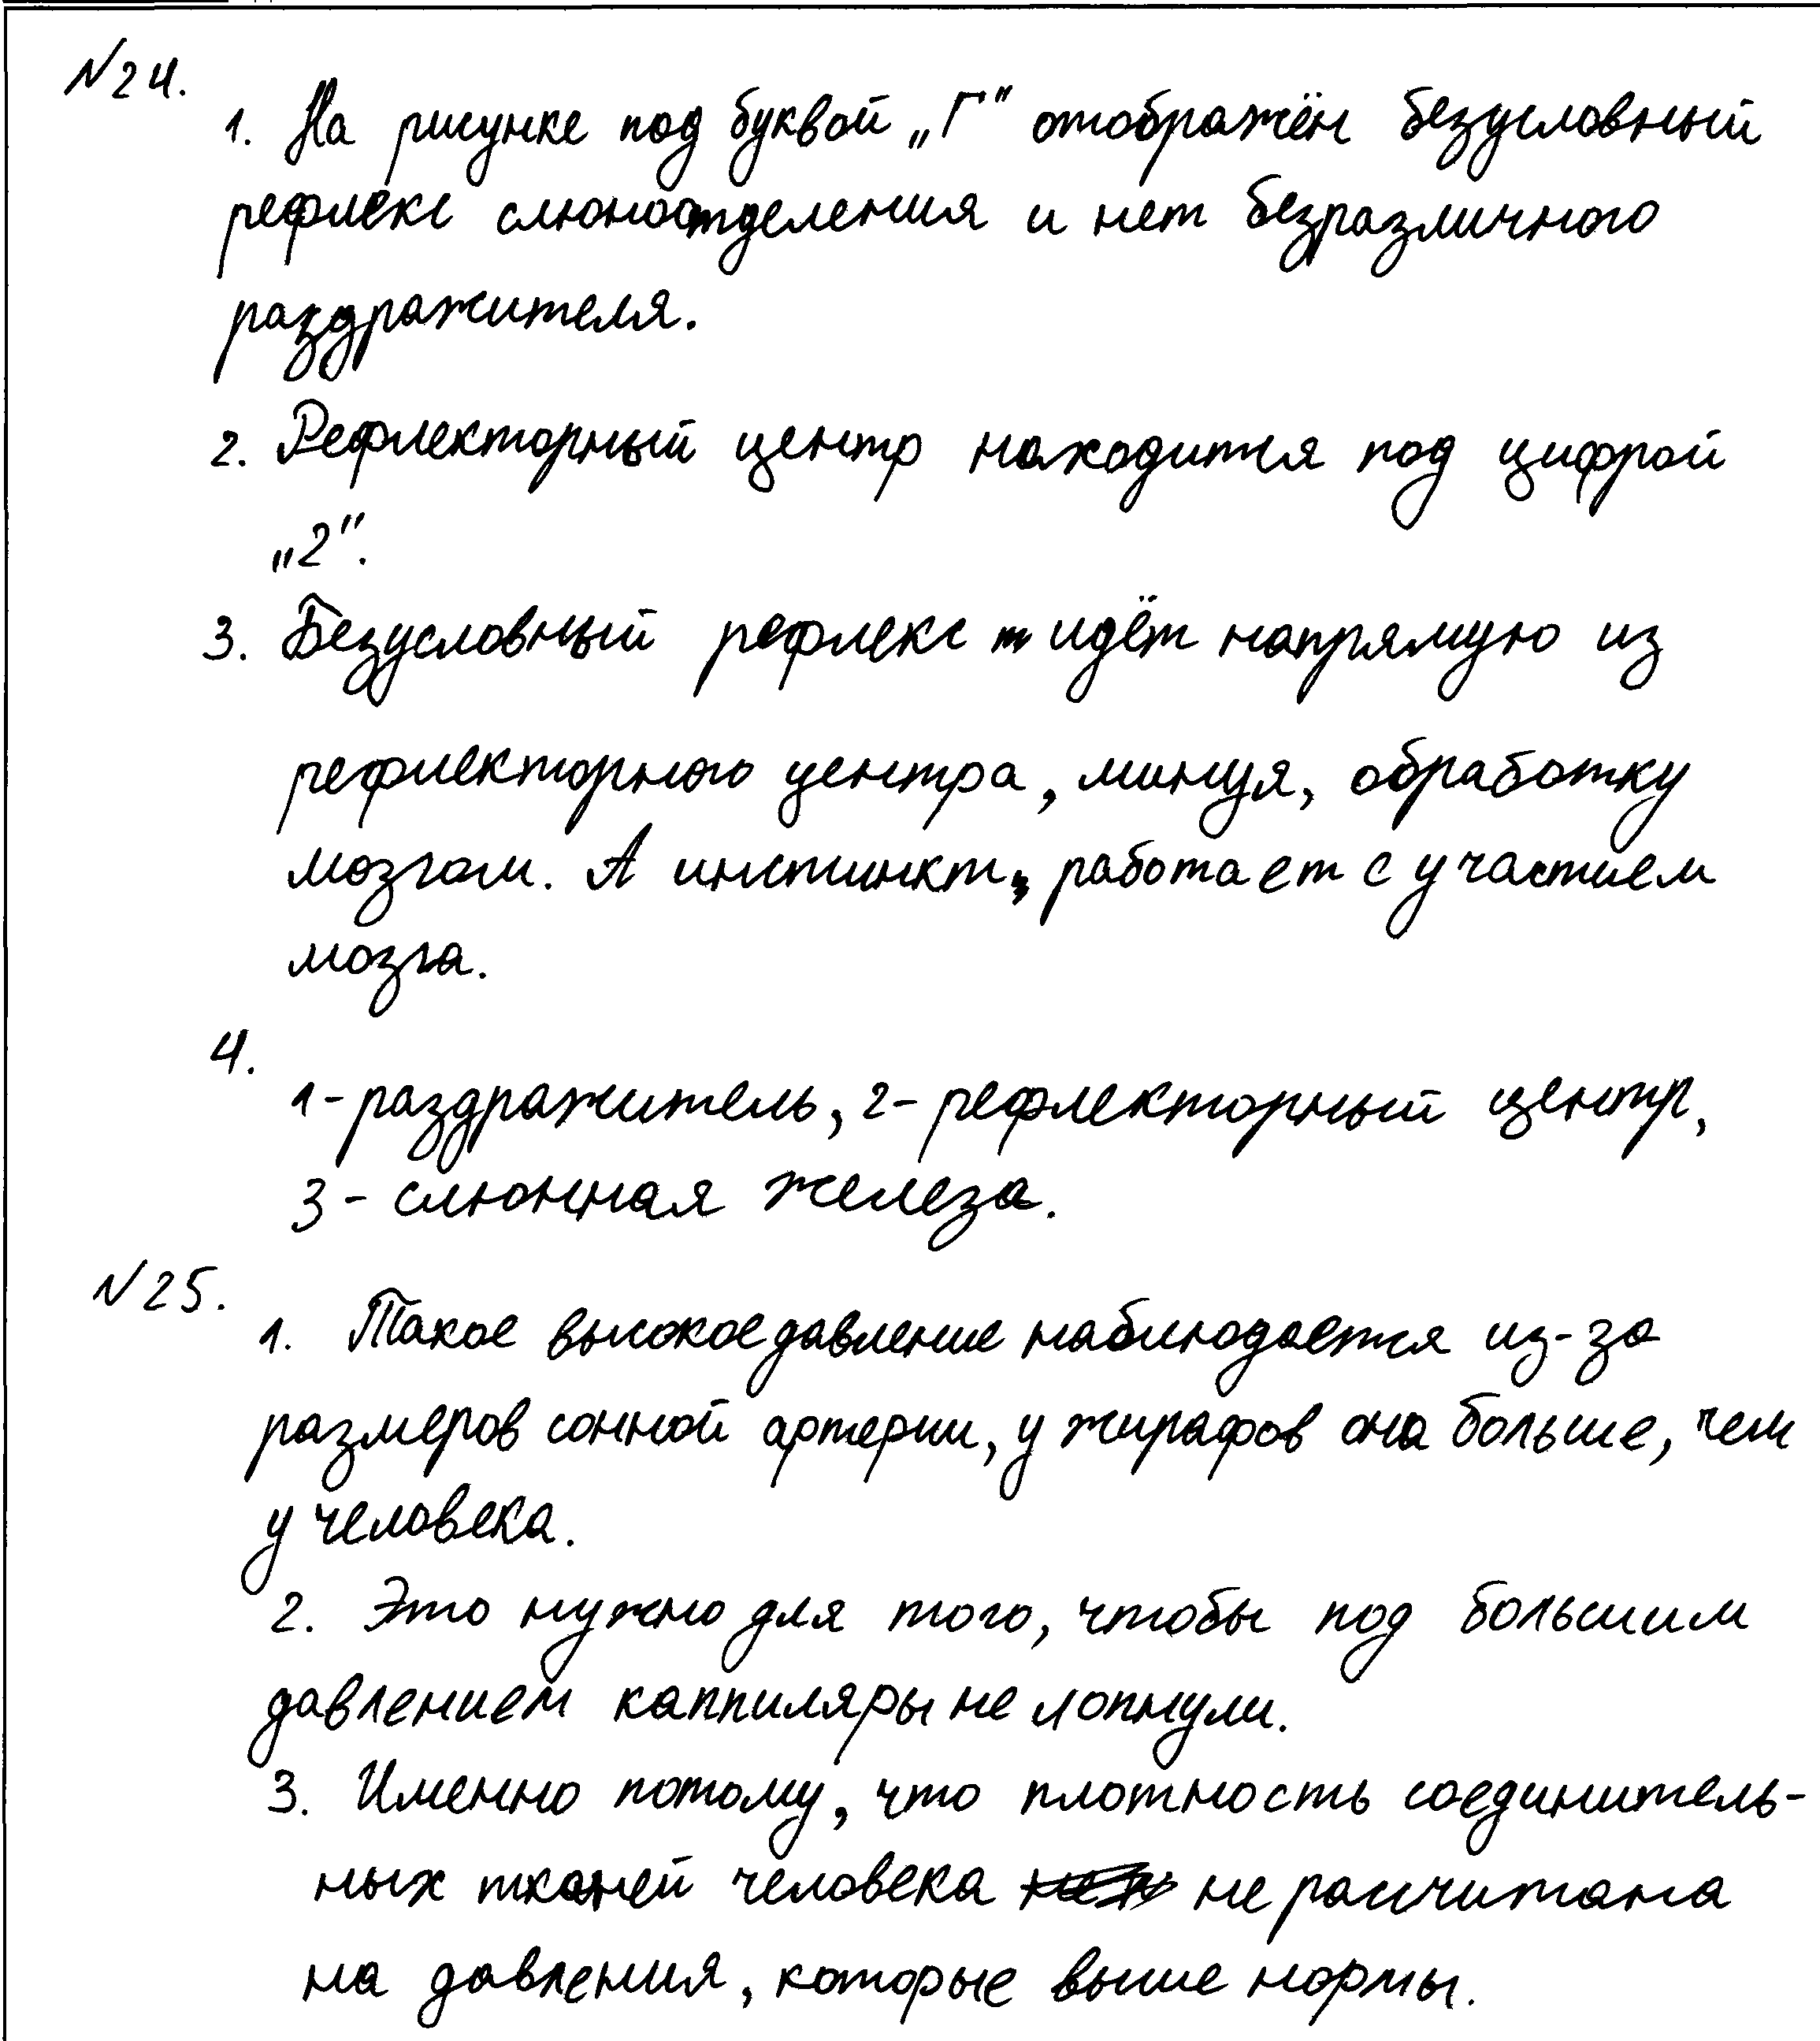 №24.
1. На рисунке под буквой „Г" отображён безусловный
рефлекс слюноотделения и нет безразличного
раздражителя.
2. Рефлекторный центр находится под цифрой
„2".
3. Безусловный рефлекс идёт напрямую из
рефлекторного центра, минуя, обработку
мозгом. А инстинкт, работает с участием
мозга.
4.
1-раздражитель, 2-рефлекторный центр,
3-слюнная железа.
№25.
1. Такое высокое давление наблюдается из-за
размеров сонной артерии, у жирафов она больше, чем
у человека.
2. Это нужно для того, чтобы под большим
давлением каппиляры не лопнули.
3. Именно потому, что плотность соединитель-
ных тканей человека не расчитана
на давления, которые выше нормы.